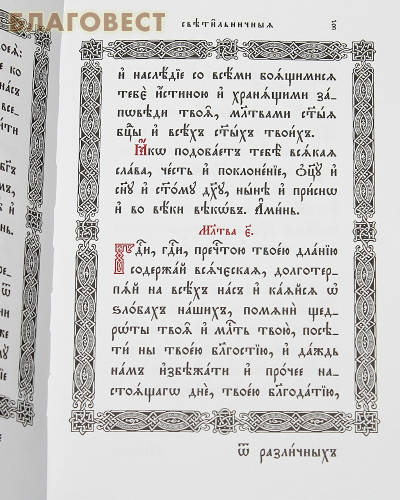 БЛАГОВЕСТ
свѣти́льничныѧ
и҆ наслѣ́дїе со всѣ́ми боѧ́щимисѧ
тебѐ и҆́стиною и҆ хранѧ́щими за_
пѡ́вѣди твоѧ̑, мл҃твами ст҃ы́ѧ
бц҃ы и҆ всѣ́хъ ст҃ы́хъ твои́хъ.
Ꙗ҆́кѡ подоба́етъ тебѣ̀ всѧ́каѧ
сла́ва, че́сть и҆ поклоне́нїе, ѻ҆ц҃ꙋ̀ и҆
сн҃ꙋ и҆ ст҃о́мꙋ дх҃ꙋ, ны́нѣ и҆ при́снѡ
и҆ во вѣ́ки вѣкѡ́въ. А҆ми́нь.
Мл҃тва є҃.
Гдⷭ҇и, гдⷭ҇и, пречⷭ҇тою твое́ю дла́нїю
содержа́й всѧ́чєскаѧ, долготер_
пѧ́й на всѣ́хъ на́съ и҆ ка́ѧйсѧ ѡ҆
ѕло́бахъ на́шихъ, помѧнѝ щед_
рѡ́ты твоѧ̑ и҆ мл҃ть твою̀, посѣ_
тѝ ны̀ твое́ю бл҃гостїю, и҆ да́ждь
на́мъ и҆збѣжа́ти и҆ про́чее на_
стоѧ́щагѡ днѐ, твое́ю бл҃года́тїю,
ѿ разли́чныхъ